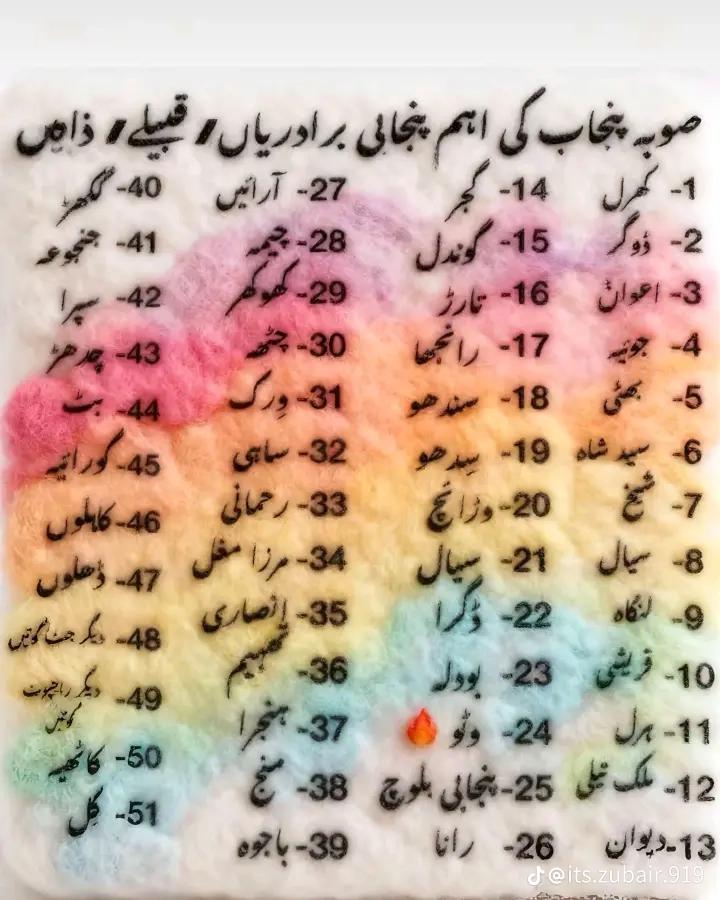 صوبہ پنجاب کی اہم پنجابی برادریاں، قبیلے، ذاتیں
1- کھرل
2- ڈوگر
3- اعوان
4- جوئیہ
5- بھٹی
6- سید شاہ
7- شیخ
8- سیال
9- لنگاہ
10- قریشی
11- ہرل
12- ملک تیلی
13- دیوان
14- گجر
15- گوندل
16- تارڑ
17- رانجھا
18- سندھو
19- سدھو
20- وڑائچ
21- سیال
22- ڈگرا
23- بودلہ
24- وٹو
25- پنجابی بلوچ
26- رانا
27- آرائیں
28- چیمہ
29- کھوکھر
30- چٹھہ
31- ورک
32- ساہی
33- رحمانی
34- مرزا مغل
35- انصاری
36- تھہیم
37- ہنجرا
38- منج
39- باجوہ
40- گکھڑ
41- جنجوعہ
42- سپرا
43- چدھڑ
44- بٹ
45- گورائیہ
46- کاہلوں
47- ڈھلوں
48- دیگر جٹ گوتیں
49- دیگر راجپوت گوتیں
50- کاٹھیہ
51- گل
@its.zubair.919